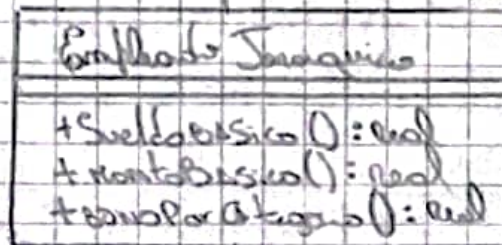 Empleado Jerarquico
+SueldoBasico(): real
+montoBasico(): real
+bonoPorCategoria(): real